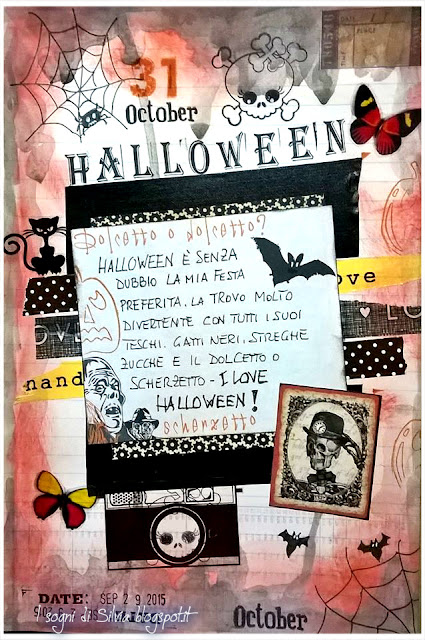 31
October
HALLOWEEN
Dolcetto o dolcetto?
HALLOWEEN È SENZA
DUBBIO LA MIA FESTA
PREFERITA. LA TROVO MOLTO
DIVERTENTE CON TUTTI I SUOI
TESCHI. GATTI NERI, STREGHE
ZUCCHE E IL DOLCETTO O
SCHERZETTO - I LOVE
HALLOWEEN!
scherzetto
ove
OVE
LO
nand
DATE: SEP 2 9 2015
I sogni di Silvia.blogspot.it
October